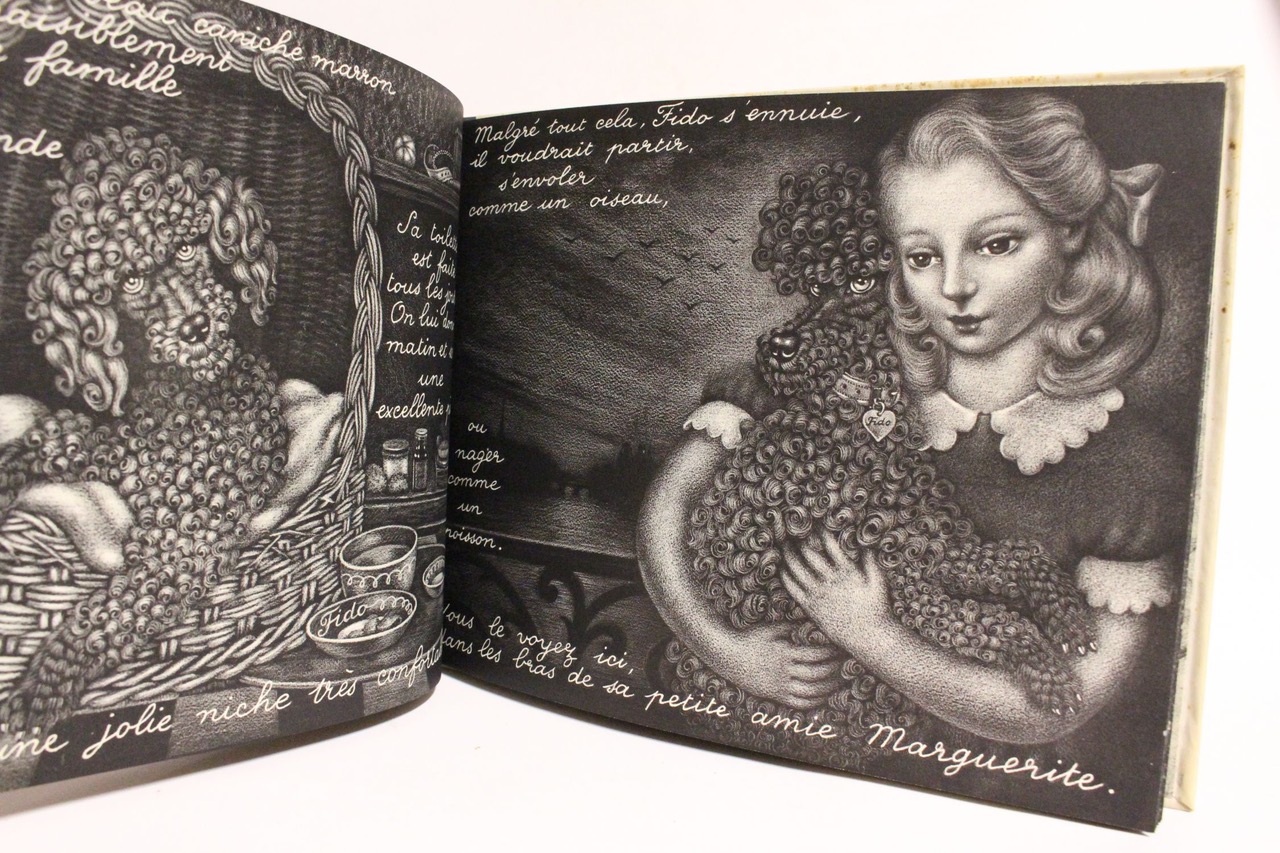 caniche marron
paisiblement
famille
Sa
est
tous les
On lui
matin et
une
excellente
Fido
jolie niche très
Malgré tout cela, Fido s'ennuie,
il voudrait partir,
s'envoler
comme un oiseau,
ou
nager
comme
un
poisson.
Fido
Vous le voyez ici,
dans les bras de sa petite amie Marguerite.